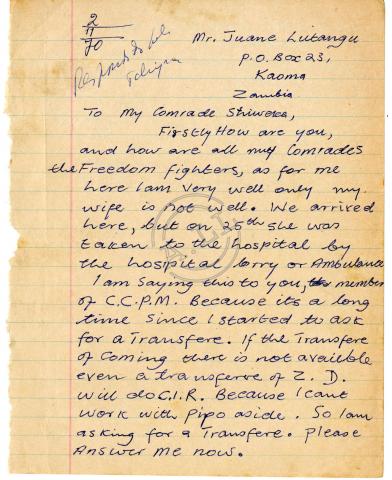 2
11
70
Responded to
Mr. Juane Liitangu
P.O. BOX 23,
Kaoma
Zambia
To My Comrade Shiweka,
Firstly How are you,
and how are all my Comrades
the Freedom fighters, as for me
here I am Very well only my
wife is not well. We arrived
here, but on 25th she was
taken to the hospital by
the hospital lorry or Ambulance
I am Saying this to you, the member
of C.C.P.M. Because its a long
time Since I started to ask
for a Transfere. If the Transfere
of Coming there is not availble
even a transferve of Z. D.
will do C.I.R. Because I cant
work with Pipo aside. So I am
asking for a Transfere. Please
Answer me now.